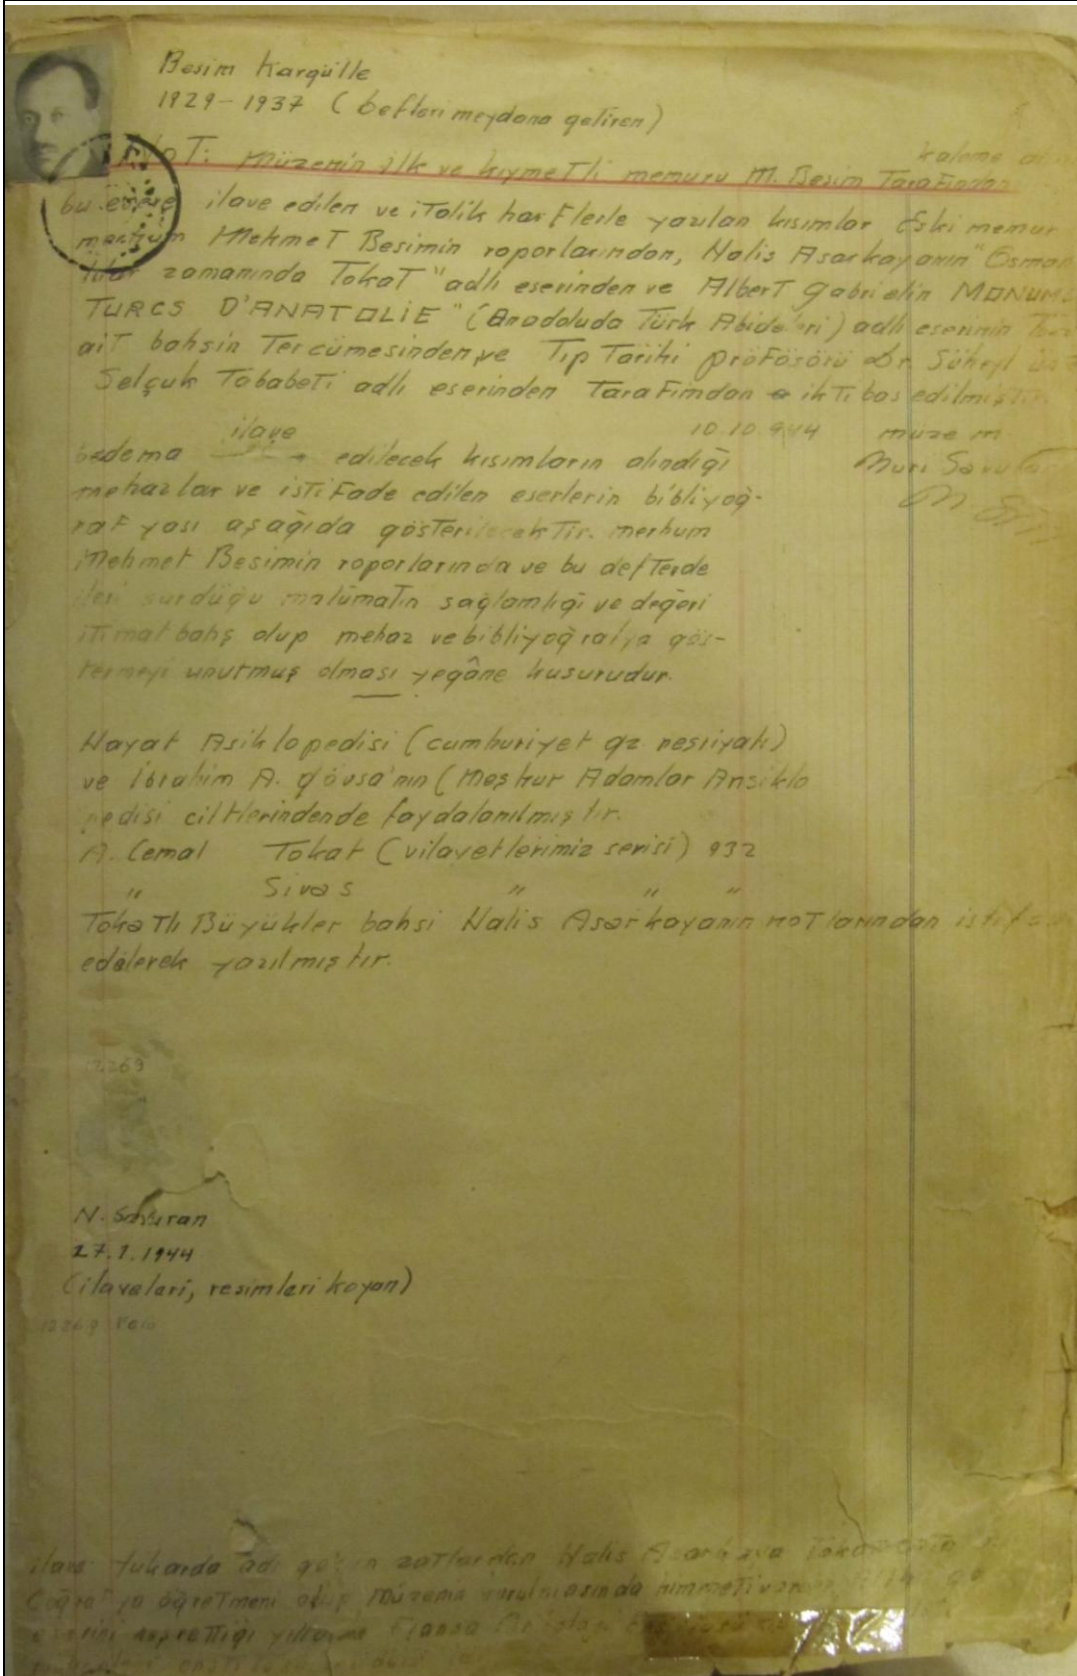 Besim Kargülle
1929-1937 (defteri meydana getiren)
NOT: Müzenin ilk ve kıymetli memuru M. Besim Tarafından kaleme
bu esere ilave edilen ve italik harflerle yazılan kısımlar Eski memur
merhum Mehmet Besimin roporlarından, Halis Asarkayanın "Osman
lılar zamanında Tokat" adlı eserinden ve Albert Gabrielin MONUM
TURCS D'ANATOLİE" (Anadoluda Türk Abideleri) adlı eserinin
ait bahsin Tercümesinden ve Tıp Tarihi pröfösörü Dr. Süheyl
Selçuk Tababeti adlı eserinden Tarafımdan iktibas edilmiştir.
10.10.944 müze m
Nuri Savura
badema ilave edilecek kısımların alındığı
mehazlar ve istifade edilen eserlerin bibliyoğ-
rafyası aşağıda gösterilecektir. merhum
Mehmet Besimin roporlarında ve bu defterde
ileri sürdüğü malümatın sağlamlığı ve değeri
itimatbahş olup mehaz ve bibliyoğrafya gös-
termeyi unutmuş olması yegâne kusurudur.
Hayat Asiklopedisi (cumhuriyet gz. neşriyatı)
ve İbrahim A. Gövsa'nın (Meşhur Adamlar Ansiklo
pedisi ciltlerindende faydalanılmıştır.
A. Cemal Tokat (vilayetlerimiz serisi) 932
" Sivas " " "
Tokatlı Büyükler bahsi Halis Asarkayanın notlarından istifa
edilerek yazılmıştır.
12269
N. Savuran
27.1.1944
(ilaveleri, resimleri koyan)
12269
ilave Yukarda adı geçen zatlardan Halis Asarkaya Tokat
Coğrafya öğretmeni olup, Müzenin kurulmasında himmeti
eserini neşrettiği yıllarda